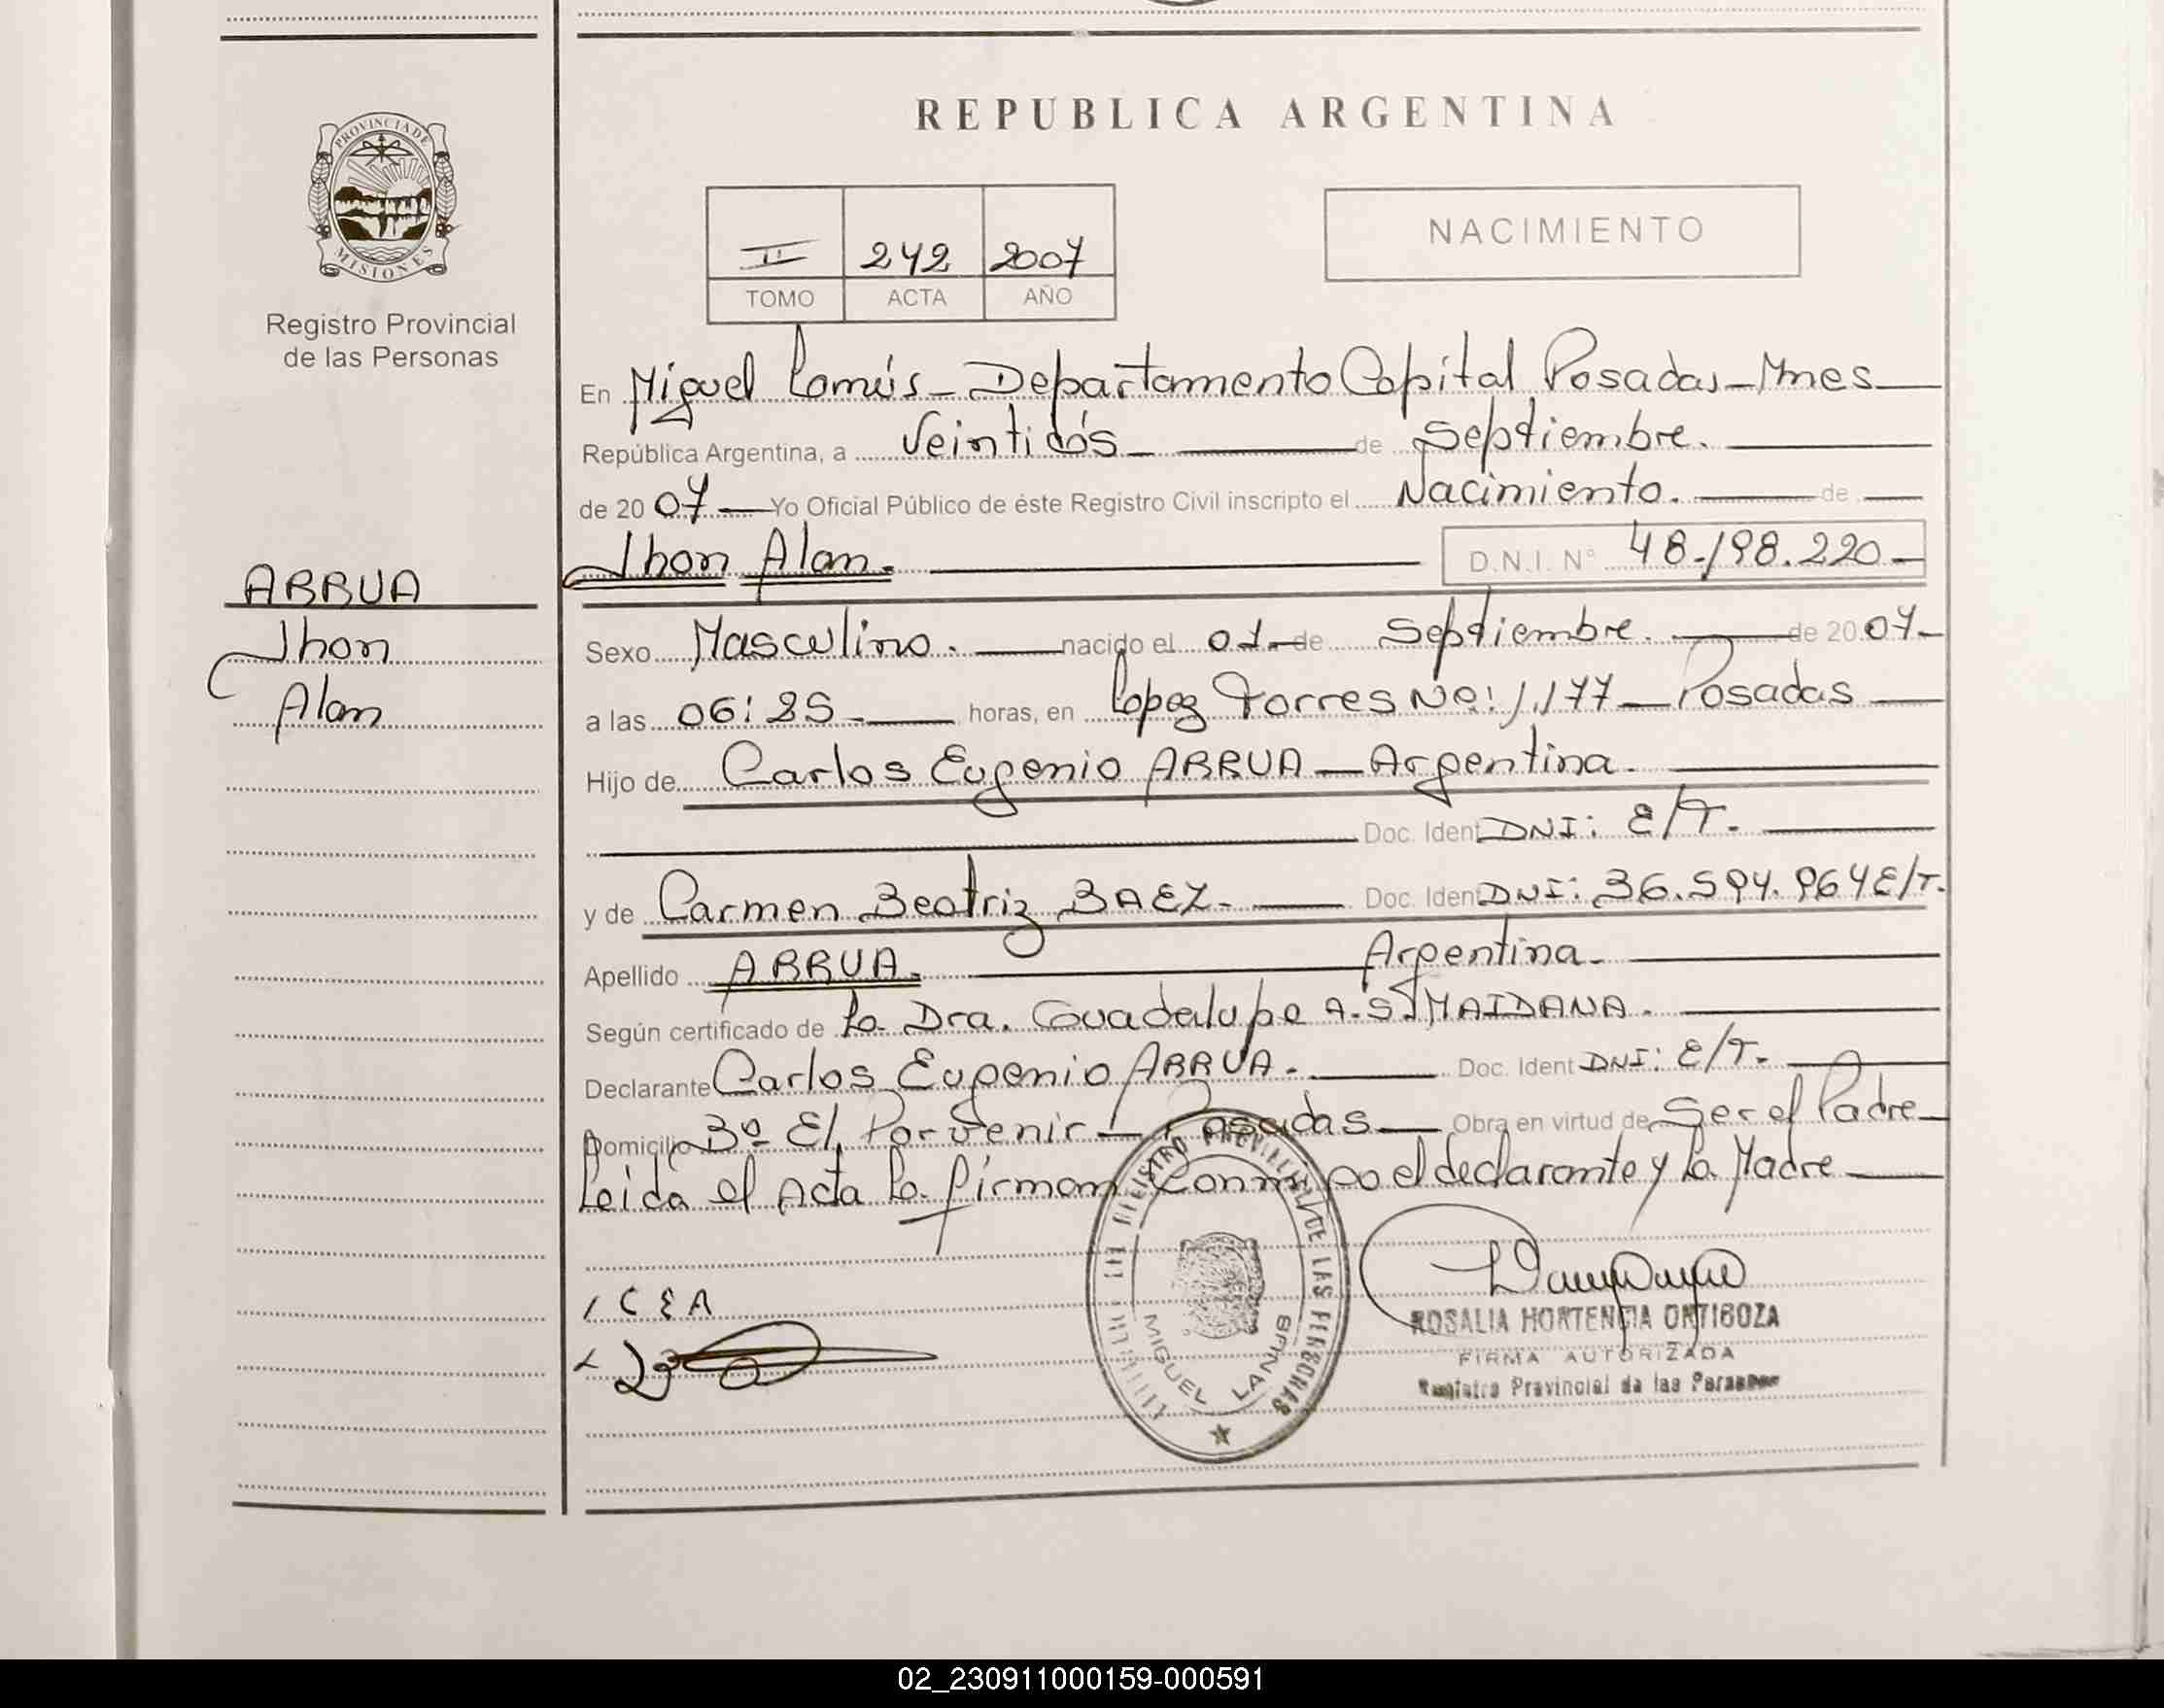 REPUBLICA ARGENTINA
PROVINCIA DE
MISIONES
Registro Provincial
de las Personas
II 242 2007
TOMO ACTA AÑO
NACIMIENTO
En Miguel Lanús - Departamento Capital Posadas - Mnes
República Argentina, a Veintidós de Septiembre.
de 2007 Yo Oficial Público de éste Registro Civil inscripto el Nacimiento. de
Jhon Alan. D.N.I. N° 48.198.220
ARRUA
Jhon
Alan
Sexo Masculino. nacido el 01 de Septiembre. de 2007
a las 06:25 horas, en Lopez Torres No: 1.177 - Posadas
Hijo de Carlos Eugenio ARRUA - Argentina.
Doc. Ident DNI: E/T.
y de Carmen Beatriz BAEZ. Doc. Ident DNI: 36.594.964 E/T.
Apellido ARRUA. Argentina.
Según certificado de la Dra. Guadalupe A. S. MAIDANA.
Declarante Carlos Eugenio ARRUA. Doc. Ident DNI: E/T.
Domicilio Bº El Porvenir - Posadas Obra en virtud de Ser el Padre
Leida el Acta la firman conmigo el declarante y la Madre
CEA
REGISTRO PROVINCIAL DE LAS PERSONAS
MIGUEL LANUS
ROSALIA HORTENCIA ORTIGOZA
FIRMA AUTORIZADA
Registro Provincial de las Personas
02_230911000159-000591